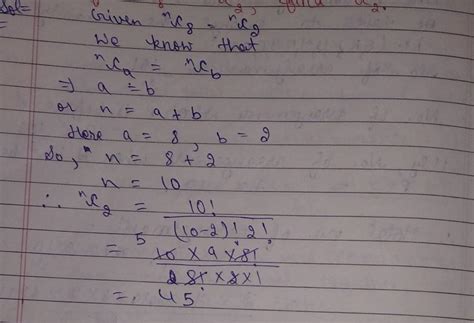 Sol=
Given ⁿC₈ = ⁿC₂
We know that
ⁿCₐ = ⁿC_b
⇒ a = b
or n = a + b
Here a = 8, b = 2
So, n = 8 + 2
n = 10
∴ ⁿC₂ = 10!
(10-2)! 2!
= 5
10 x 9 x 8!
2 8! x 2 x 1
= 45